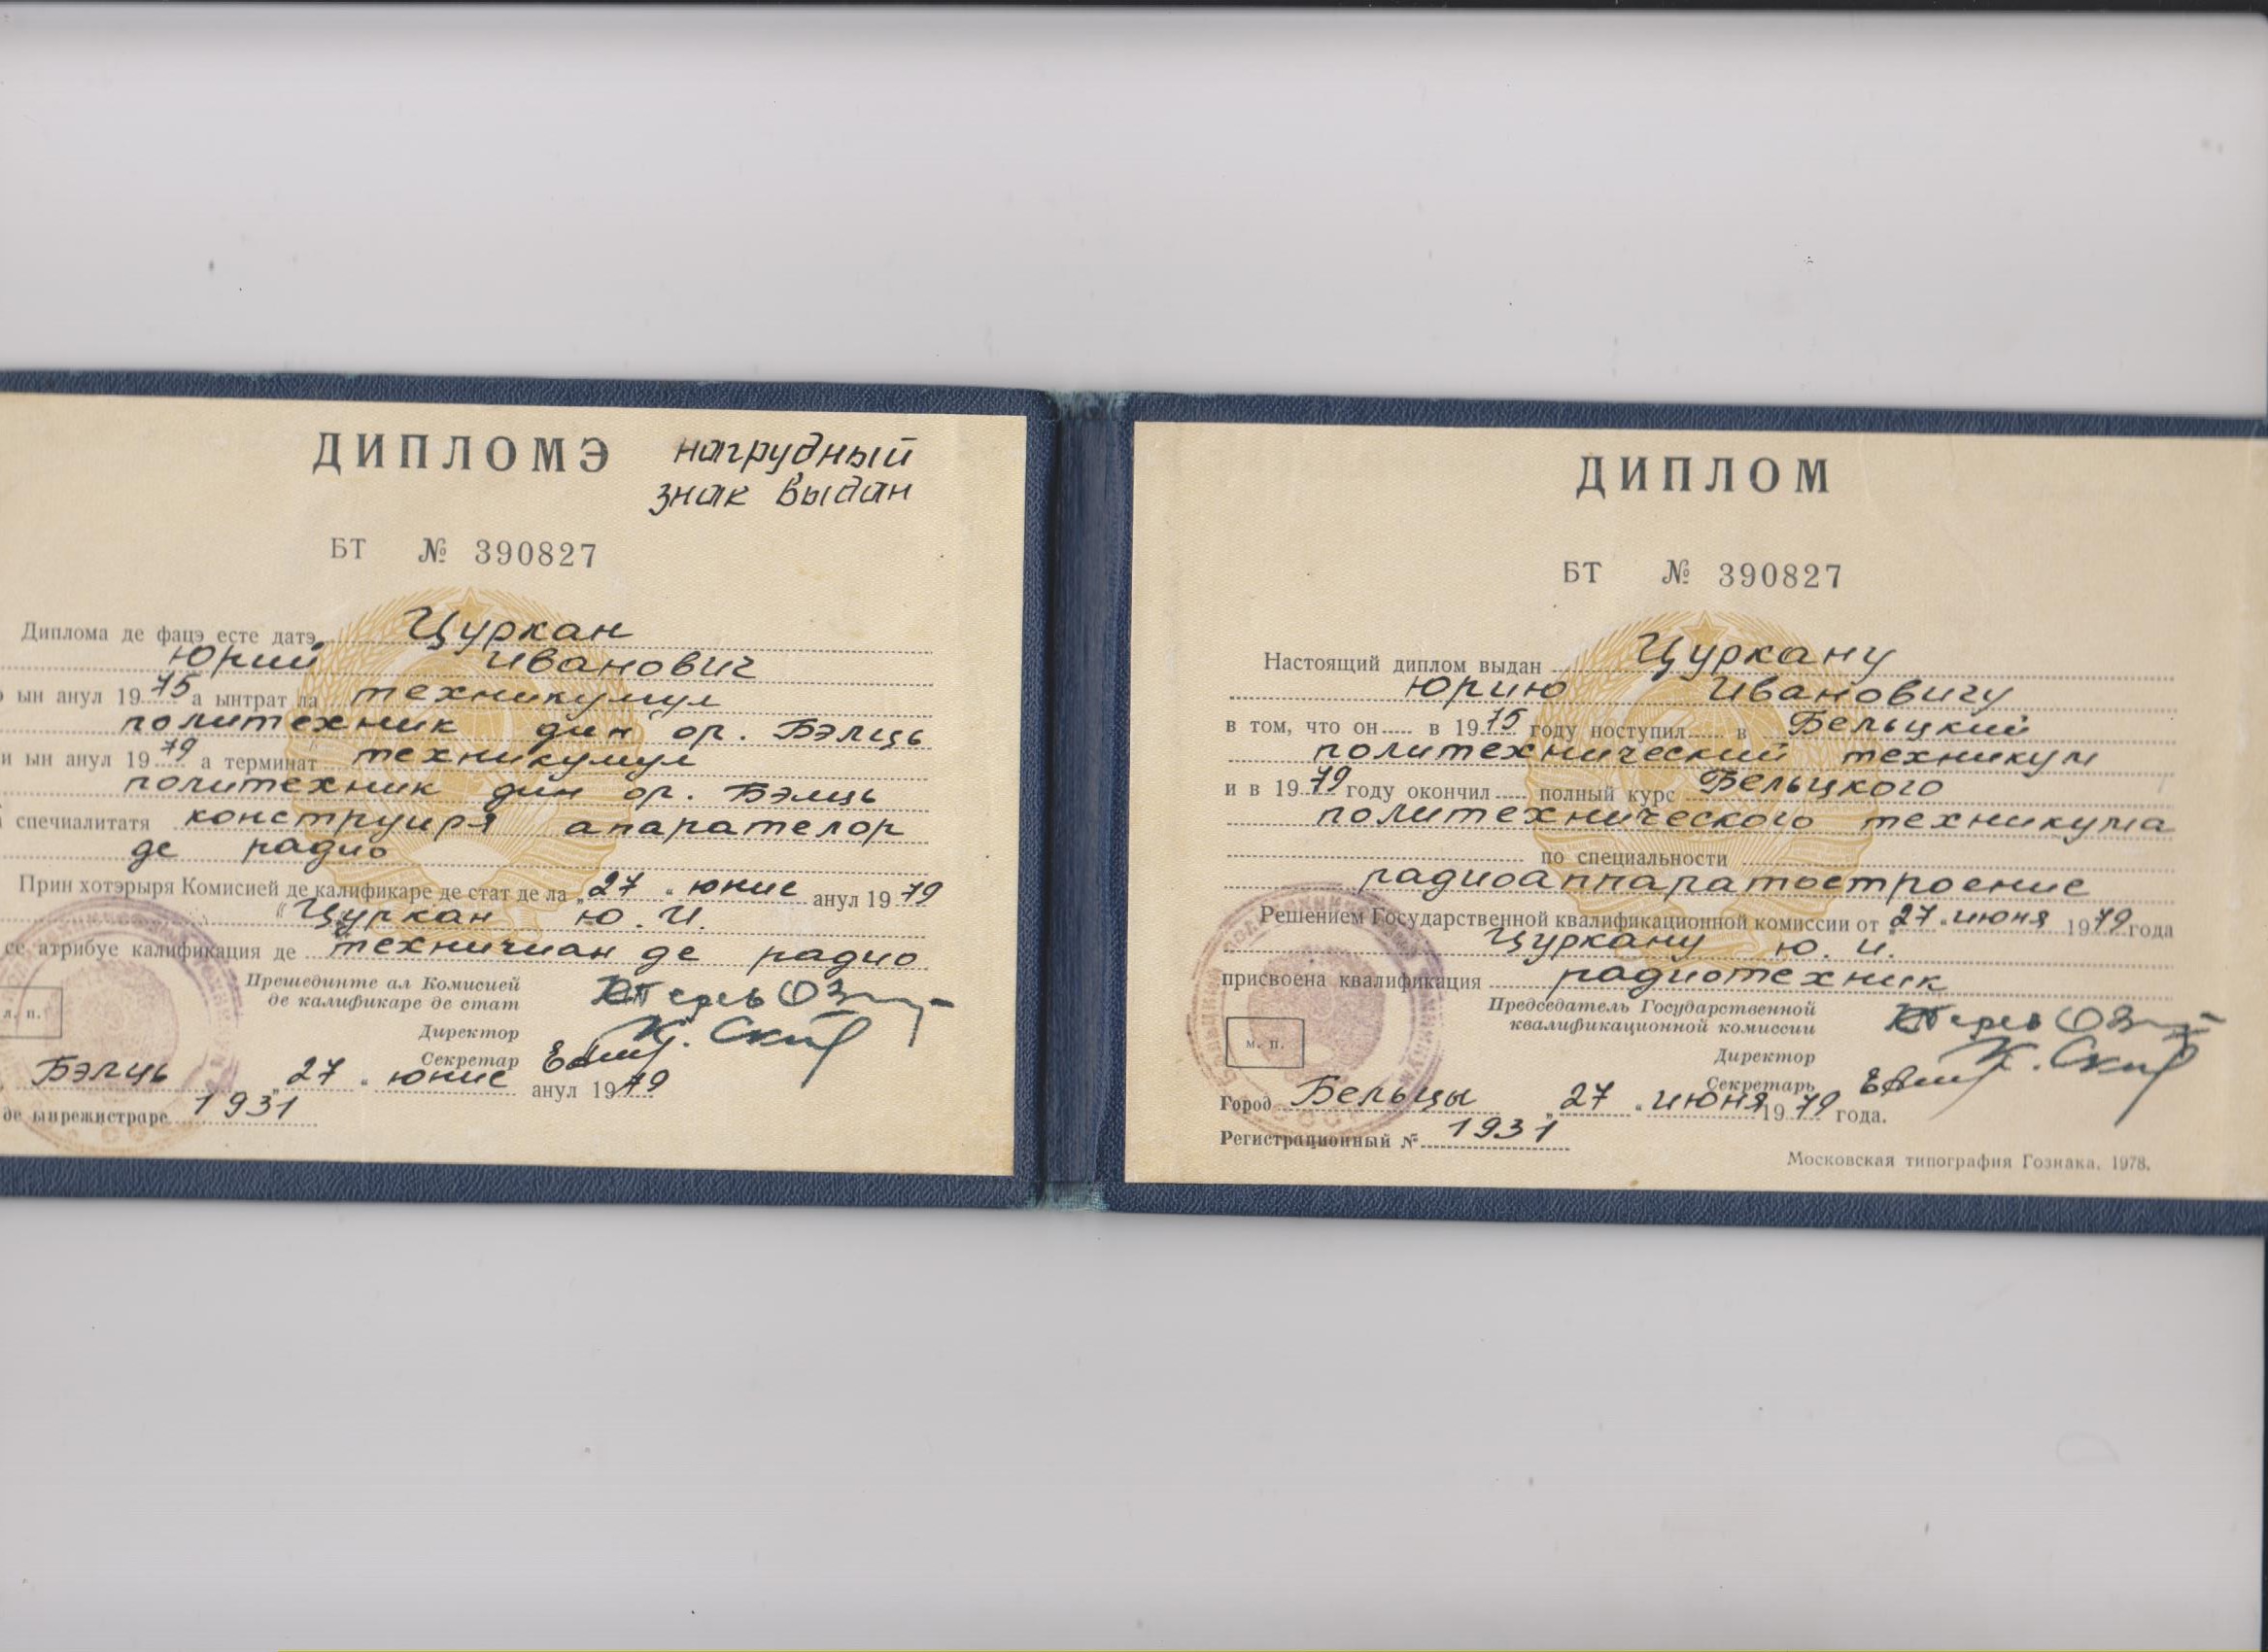 ДИПЛОМЭ
нагрудный
знак выдан
БТ № 390827
Диплома де фацэ есте датэ Цуркан
Юрий Иванович
ын анул 1975 а ынтрат ла техникумул
политехник дин ор. Бэлць
ын анул 1979 а терминат техникумул
политехник дин ор. Бэлць
спечиалитатя конструиря апарателор
де радио
Прин хотэрыря Комисией де калификаре де стат де ла „27“ юние анул 1979
Цуркан Ю. И.
се атрибуе калификация де техничиан де радио
Прешединте ал Комисией
де калификаре де стат
Директор
Секретар
л. п.
Бэлць „27“ юние анул 1979
де ынрежистраре 1931
ДИПЛОМ
БТ № 390827
Настоящий диплом выдан Цуркану
Юрию Ивановичу
в том, что он в 1975 году поступил в Бельцкий
политехнический техникум
и в 1979 году окончил полный курс Бельцкого
политехнического техникума
по специальности
радиоаппаратостроение
Решением Государственной квалификационной комиссии от „27“ июня 1979 года
Цуркану Ю. И.
присвоена квалификация радиотехник
Председатель Государственной
квалификационной комиссии
Директор
Секретарь
м. п.
Город Бельцы „27“ июня 1979 года.
Регистрационный № 1931
Московская типография Гознака. 1978.